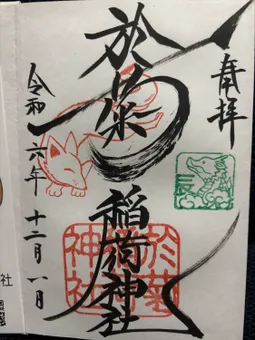 奉拝
於菊
稲荷神社
令和六年十二月一日
辰
於菊
稲荷
神社
社